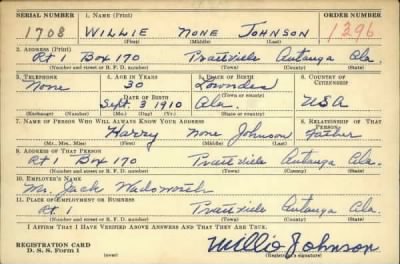 SERIAL NUMBER 1. NAME (Print) ORDER NUMBER
1708 WILLIE NONE JOHNSON 1296
(First) (Middle) (Last)
2. ADDRESS (Print)
Rt 1 Box 170 Prattville Autauga Ala.
(Number and street or R. F. D. number) (Town) (County) (State)
3. TELEPHONE 4. AGE IN YEARS 5. PLACE OF BIRTH 6. COUNTRY OF CITIZENSHIP
None 30 Lowndes
(Town or county)
DATE OF BIRTH
Sept 3 1910 Ala. USA
(Exchange) (Number) (Mo.) (Day) (Yr.) (State or country)
7. NAME OF PERSON WHO WILL ALWAYS KNOW YOUR ADDRESS 8. RELATIONSHIP OF THAT PERSON
Harry None Johnson Father
(Mr., Mrs., Miss) (First) (Middle) (Last)
9. ADDRESS OF THAT PERSON
Rt 1 Box 170 Prattville Autauga Ala.
(Number and street or R. F. D. number) (Town) (County) (State)
10. EMPLOYER'S NAME
Mr. Jack Wadsworth
11. PLACE OF EMPLOYMENT OR BUSINESS
Rt. 1 Prattville Autauga Ala.
(Number and street or R. F. D. number) (Town) (County) (State)
I AFFIRM THAT I HAVE VERIFIED ABOVE ANSWERS AND THAT THEY ARE TRUE.
REGISTRATION CARD Willie Johnson
D. S. S. Form 1 (over) (Registrant's signature)